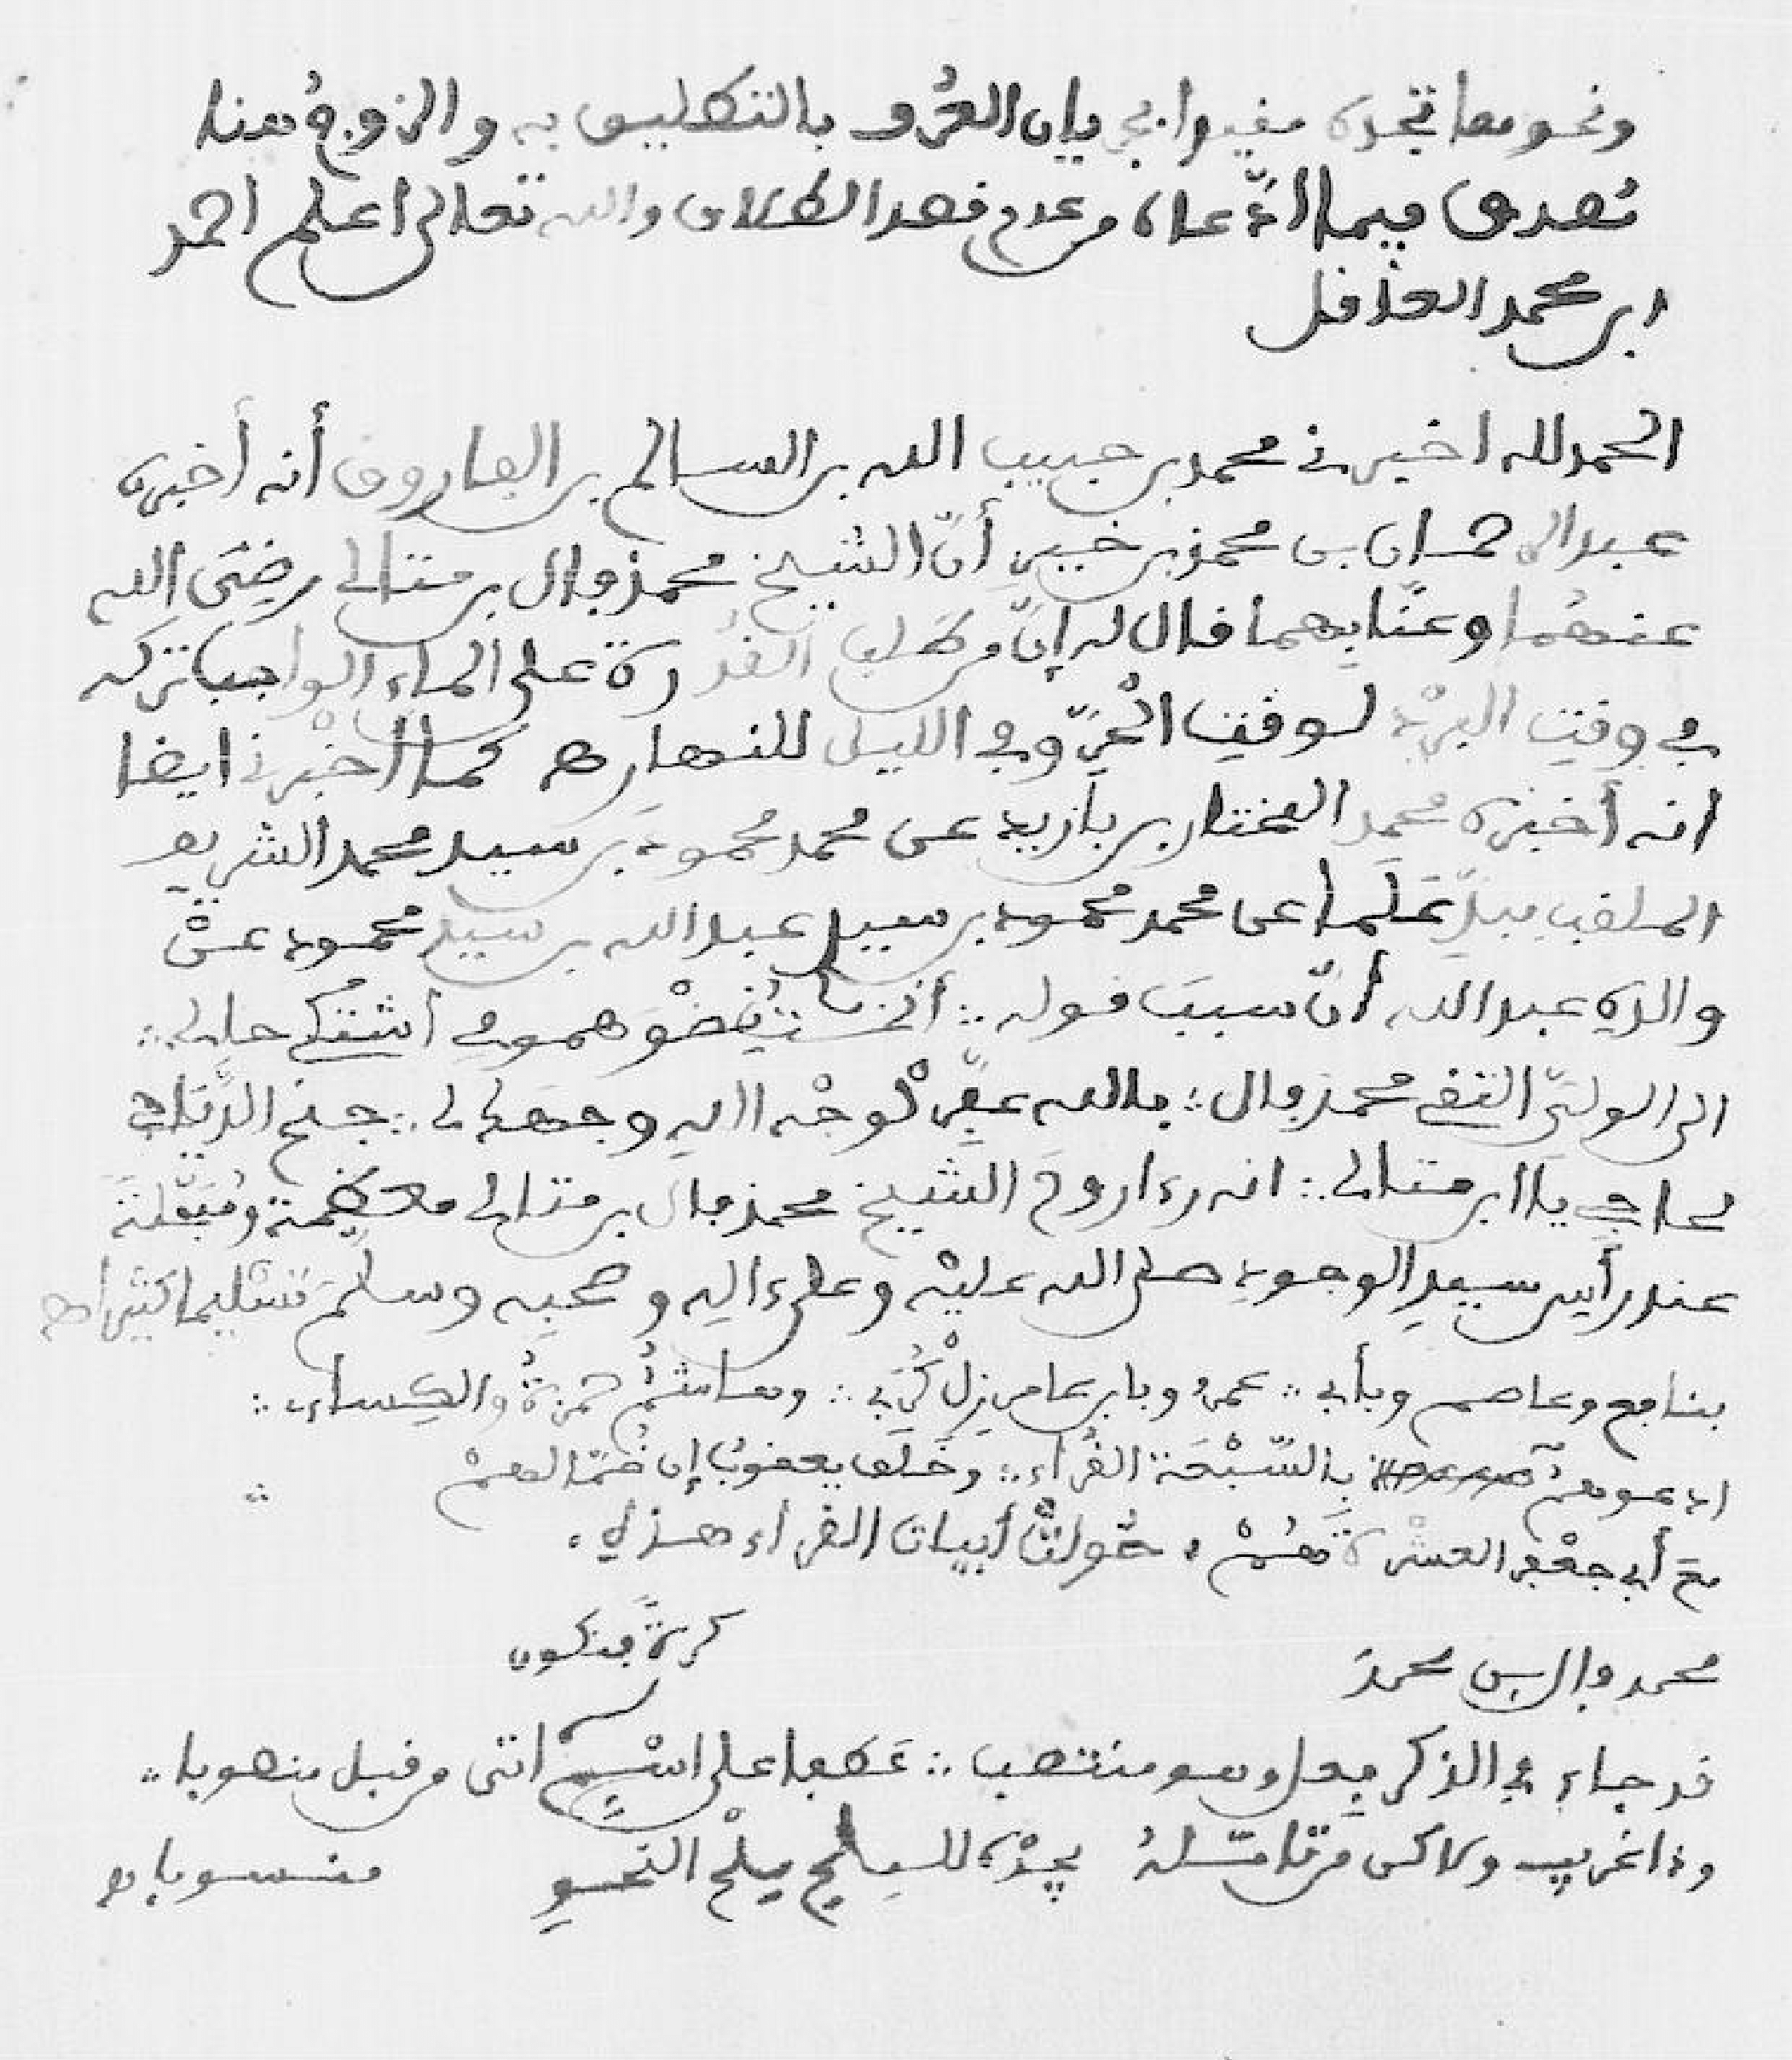 ونحوها تجده مفيدا في بيان العرف بالتطليق به والزوج هنا
تصدق فيما ادعاه من عدم قصد الطلاق والله تعالى اعلم احمد
ابن محمد العاقل
الحمد لله اخبرني محمد بن حبيب الله بن السالم بن الفاروق أنه أخبره
عبد الرحمان بن محمذ بن خبيب أنّ الشيخ محمذ فال بن متالي رضي الله
عنهما وعنّا بهما قال له إنّ من طلب القدرة على الماء الواجب تركه
في وقت البرْد لوقت الحرّ وفي الليل للنهار اهـ كما اخبْرني ايضا
انه أخبره محمد المختار بن بازيد عن محمد محمود بن سيد محمد الشريف
الملقب علما عن محمد محمود بن سيد عبد الله بن سيد محمود عنْ
والده عبد الله أنّ سبب قوله ∴ همومي أشتكي حالي ∴
الى الوليّ التقي محمذ فال ∴ بالله عفّرْ لوجْه الله وجهك لي ∴ جنح الدياجي
لحاجي يا ابن متالي ∴ انه رءا روح الشيخ محمذ فال بن متالي معظمة ومبجّلة
عند رأس سيد الوجود صلى الله عليْه وعلى ءاله وصحبه وسلم تسْليما كثيرا اهـ
بنافع وعاصم وبأبي ∴ عمرو وبابن عامر زلْ كُرَبي ∴ وهاشمُ حمزةُ والكساء ∴
ادعوهمُ بالسّبْعة القُراء ∴ وخلف يعقوبُ إن ضُمّا لهمْ ∴
مع أبي جعْفر العشْرة هُمْ ، أبيات القراء هذي .
محمد فال بن محمذ
كرة فنكون
قد جاء في الذكر فعل وهو منتصب ∴ عطفا على اسْم اتى من قبل منصوبا ∴
وذا غريب ولاكن من تأمّلهُ يجدْه للنحو منسوبا اهـ